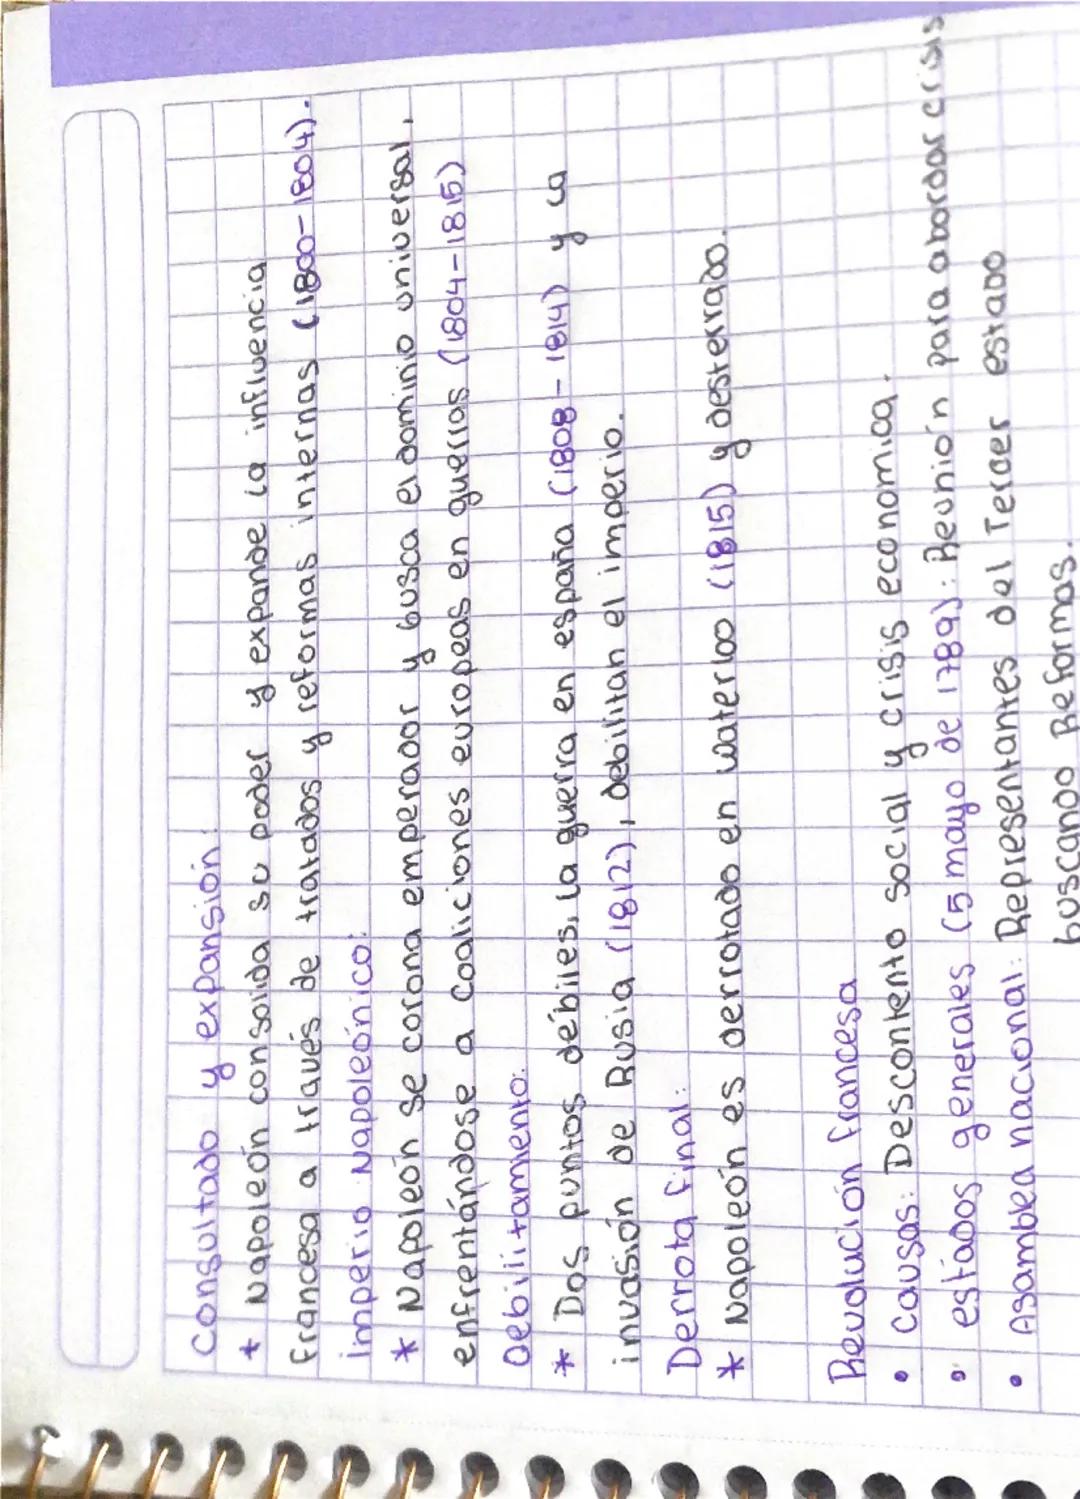 Consultado y expansión:
* Napoleón consolida su poder y expande la influencia
francesa a través de tratados y reformas internas (1800-1804).
Imperio Napoleónico:
* Napoleón se corona emperador y busca el dominio universal,
enfrentándose a coaliciones europeas en guerras (1804-1815)
Debilitamiento:
* Dos puntos débiles, la guerra en españa (1808-1814) y la
invasión de Rusia (1812), debilitan el imperio.
Derrota final:
* Napoleón es derrotado en waterloo (1815) y desterrado.
Revolución francesa
• causas: Descontento social y crisis economica.
• estados generales (5 mayo de 1789): Reunión para abordar crisis
• Asambea nacional: Representantes del Tercer estado
buscando Reformas.